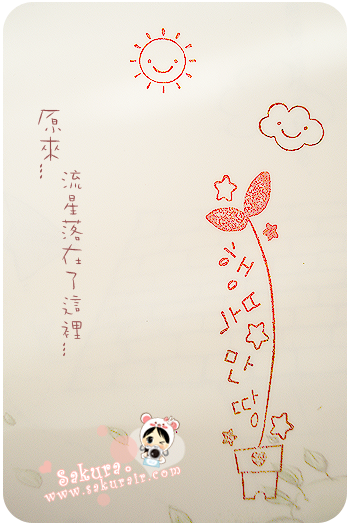 原來...
流星落在了這裡...
행복만땅
Sakura。
www.sakurair.com